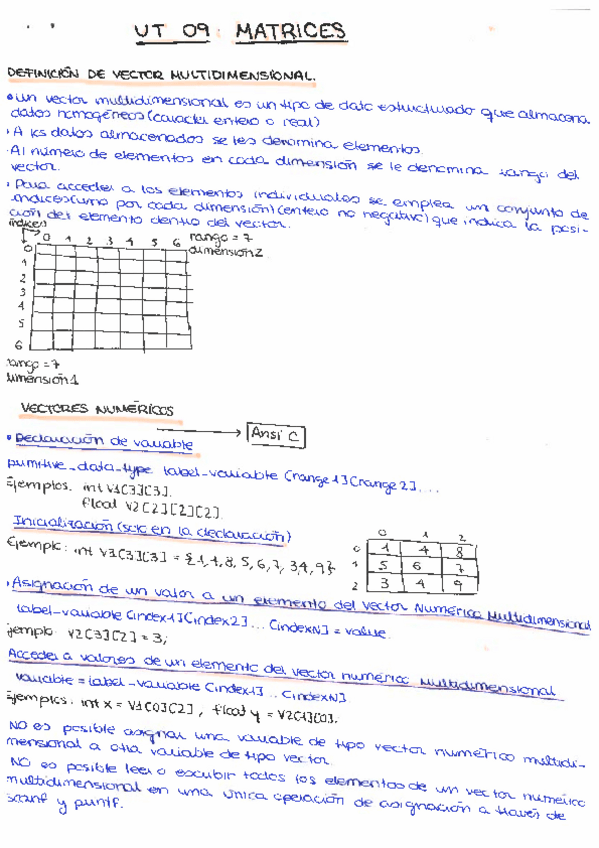 UT 09: MATRICES
DEFINICIÓN DE VECTOR MULTIDIMENSIONAL.
• Un vector multidimensional es un tipo de dato estructurado que almacena
datos homogéneos (carácter entero o real)
· A los datos almacenados se les denomina elementos.
· Al número de elementos en cada dimensión se le denomina rango del
vector.
· Para acceder a los elementos individuales se emplea un conjunto de
índices (uno por cada dimensión) (entero no negativo) que indica la posi-
ción del elemento dentro del vector.
índices
0 1 2 3 4 5 6 rango = 7
dimensión 2
0
1
2
3
4
5
6
rango = 7
dimensión 1
VECTORES NUMÉRICOS
Ansi C
• Declaración de variable
primitive_data_type label-variable [range1][range2]...
Ejemplos. int V1[3][3].
float V2[2][2][2].
Inicialización (solo en la declaración)
Ejemplo: int V3[3][3] = {1,4,8,5,6,7,3,4,9};
0 1 2
0 1 4 8
1 5 6 7
2 3 4 9
· Asignación de un valor a un elemento del vector Numérico Multidimensional
label-variable [index1][index2]... [indexN] = value.
Ejemplo V2[3][2] = 3;
Acceder a valores de un elemento del vector numérico Multidimensional
variable = label-variable [index1].. [indexN]
Ejemplos: int x = V1[0][2], float y = V2[1][0].
NO es posible asignar una variable de tipo vector numérico multidi-
mensional a otra variable de tipo vector.
NO es posible leer o escribir todos los elementos de un vector numérico
multidimensional en una única operación de asignación a través de
scanf y printf.